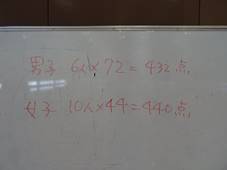 男子 6人×72=432点
女子 10人×44=440点